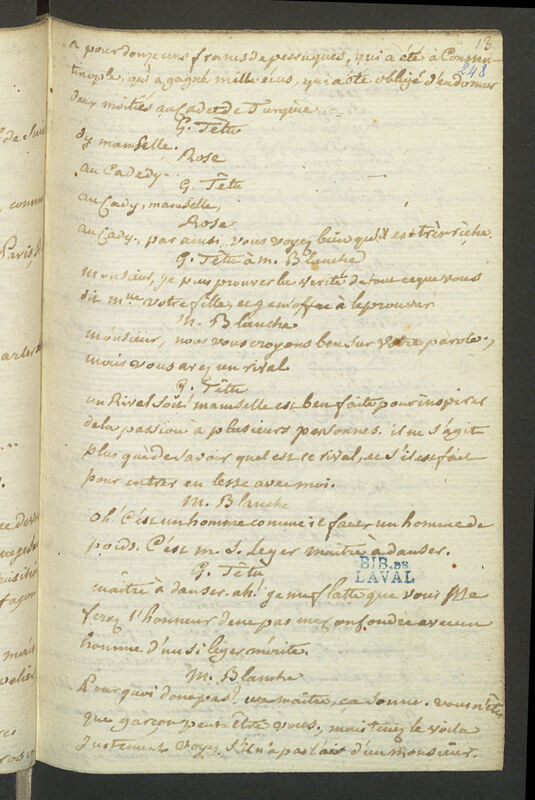 13
248
a pour douze cens francs de perruques, qui a été à Constan
tinople, qui a gagné mille ecus, qui a été obligé d'en donner
deux moitiés au Cadet de Turquie.
G. Têtu
dy mamselle.
Rose
au Cadedy.
G. Têtu
au Cady, mamselle,
Rose
au Cady. par ainsi, vous voyez bien qu'il est très riche.
G. Têtu à m. Blanche
monsieur, je puis prouver la verité de tout ce que vous
dit mlle votre fille, et je m'offre à le prouver.
m. Blanche
monsieur, nous vous croyons ben sur votre parole.,
mais vous avez un rival.
G. Têtu
un Rival soit! mamselle est ben faite pour inspirer
de la passion à plusieurs personnes. il ne s'agit
plus que de savoir quel est ce rival, et s'il est fait
pour entrer en lesse avec moi.
m. Blanche
oh! C'est un homme comme il faut, un homme de
poids. C'est m. S. Leger maitre à danser.
G. Têtu
maitre à danser. ah! je me flatte que vous me
ferez l'honneur de ne pas me confondre avec un
homme d'un si leger mérite.
m. Blanche
Pourquoi donc pas? un maitre, ca sonne. vous n'êtes
que garçon peut-être vous. mais tenez le voila
justement. voyez s'il n'a pas l'air d'un monsieur.
BIB. DE
LAVAL